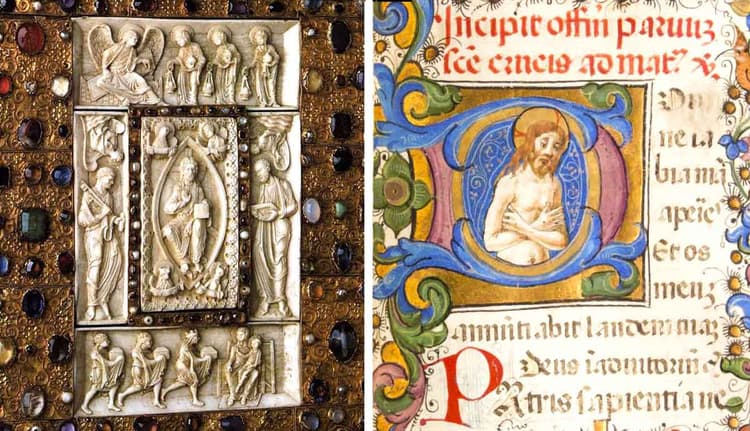 Incipit offm̄ paruuʒ
sce crucis ad mat
ne la
bia mā
Et os
meuʒ
annūtiabit laudem tuaʒ
Deus ī adiutoriū
Patris sapientia ve